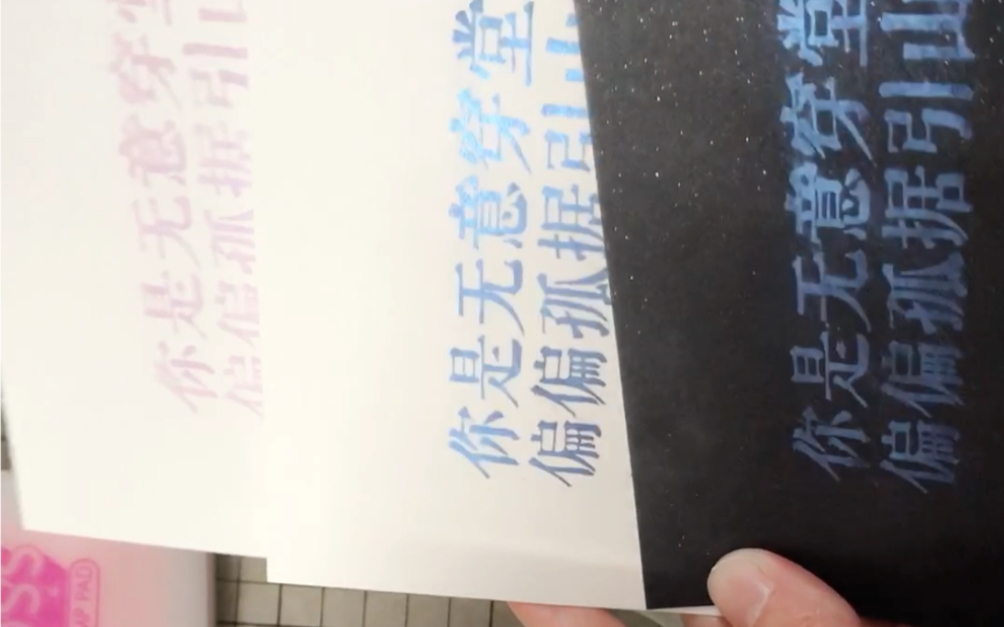 你是无意穿堂
偏偏孤据引山
你是无意穿堂
偏偏孤据引山
你是无意穿堂
偏偏孤据引山
PAD